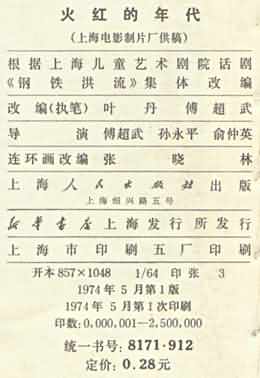 火红的年代
(上海电影制片厂供稿)
根据上海儿童艺术剧院话剧
《钢铁洪流》集体改编
改编(执笔) 叶丹 傅超武
导演 傅超武 孙永平 俞仲英
连环画改编 张晓林
上海人民出版社出版
上海绍兴路五号
新华书店上海发行所发行
上海市印刷五厂印刷
开本857×1048 1/64 印张 3
1974年5月第1版
1974年5月第1次印刷
印数:0,000,001—2,500,000
统一书号:8171·912
定价:0.28元